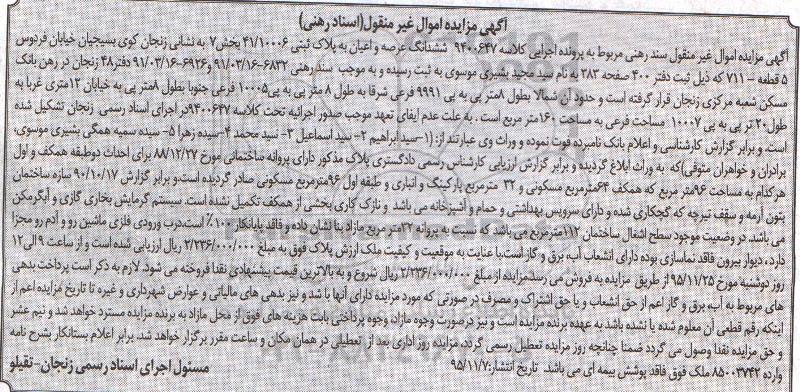 آگهی مزایده اموال غیر منقول(اسناد رهنی)
آگهی مزایده اموال غیر منقول سند رهنی مربوط به پرونده اجرایی کلاسه ۹۴۰۰۶۴۷ ششدانگ عرصه و اعیان به پلاک ثبتی ۴۱/۱۰۰۰۶ بخش۷ به نشانی زنجان کوی بسیجیان خیابان فردوس
۵ قطعه – ۷۱۱ که ذیل ثبت دفتر ۴۰۰ صفحه ۲۸۳ به نام سید مجید بشیری موسوی به ثبت رسیده و به موجب سند رهنی ۶۸۳۲–۹۱/۰۳/۱۶ و۶۹۲۶–۹۱/۰۳/۱۶ دفتر۴۸ زنجان در رهن بانک
مسکن شعبه مرکزی زنجان قرار گرفته است و حدود آن شمالا بطول ۸متر پی به پی ۹۹۹۱ فرعی شرقا به طول ۸ متر پی به پی۱۰۰۰۵ فرعی جنوبا بطول ۸متر پی به خیابان ۱۲متری غربا به
طول۲۰تر پی به پی ۱۰۰۰۷ مساحت فرعی به مساحت ۱۶۰متر مربع است . به علت عدم ایفای تعهد موجب صدور اجرائیه تحت کلاسه ۹۴۰۰۶۴۷در اجرای اسناد رسمی زنجان تشکیل شده
است. و برابر گزارش کارشناسی و اعلام بانک نامبرده فوت نموده و وراث وی عبارتند از: (۱–سیدابراهیم ۲– سید اسماعیل ۳– سید محمد ۴–سیده زهرا ۵– سیده سمیه همگی بشیری موسوی،
برادران و خواهران متوفی)که به وراث ابلاغ گردیده و برابر گزارش ارزیابی کارشناس رسمی دادگستری پلاک مذکور دارای پروانه ساختمانی مورخ ۸۸/۱۲/۲۷ برای احداث دوطبقه همکف و اول
هرکدام به مساحت ۹۶متر مربع که همکف ۶۴مترمربع مسکونی و ۳۲ مترمربع پارکینگ و انباری و طبقه اول ۹۶مترمربع مسکونی صادر گردیده است.و برابر گزارش ۹۰/۱۰/۱۷ سازه ساختمان
بتون آرمه و سقف تیرچه که گچکاری شده و دارای سرویس بهداشتی و حمام و آشپزخانه می باشد و نازک کاری بخشی از همکف تکمیل نشده است. سیستم گرمایش بخاری گازی و آبگرمکن
می باشد. در وضعیت موجود سطح اشغال ساختمان ۱۱۲مترمربع می باشد که نسبت به پروانه ۳۲متر مربع مازاد بنا نشان داده و فاقد پایانکار ۱۰۰٪ است.درب ورودی فلزی ماشین رو و آدم رو مجزا
دارد، دیوار بیرون فاقد نماسازی بوده دارای انشعاب آب، برق و گاز است.با عنایت به موقعیت و کیفیت ملک ارزش پلاک فوق به مبلغ ۲/۲۳۶/۰۰۰/۰۰۰ ریال ارزیابی شده است و از ساعت ۹ الی ۱۲
روز دوشنبه مورخ ۹۵/۱۱/۲۵ از طریق مزایده به فروش می رسد.مزایده از مبلغ ۲/۲۳۶/۰۰۰/۰۰۰ ریال شروع و به بالاترین قیمت پیشنهادی نقدا فروخته می شود. لازم به ذکر است پرداخت بدهی
های مربوط به آب، برق و گاز اعم از حق انشعاب و یا حق اشتراک و مصرف در صورتی که مورد مزایده دارای آنها با شد و نیز بدهی های مالیاتی و عوارض شهرداری و غیره تا تاریخ مزایده اعم از
اینکه رقم قطعی آن معلوم شده یا نشده باشد به عهده برنده مزایده است و نیز در صورت وجود مازاد، وجوه پرداختی بابت هزینه های فوق از محل مازاد به برنده مزایده مسترد خواهد شد و نیم عشر
و حق مزایده نقدا وصول می گردد ضمنا چنانچه روز مزایده تعطیل رسمی گردد، مزایده روز اداری بعد از تعطیلی در همان مکان و ساعت مقرر برگزار خواهد شد. برابر اعلام بستانکار بشرح نامه
وارده ۸۵۰۰۳۷۴۲ ملک فوق فاقد پوشش بیمه ای می باشد. تاریخ انتشار:۹۵/۱۱/۷ مسئول اجرای اسناد رسمی زنجان– تقیلو